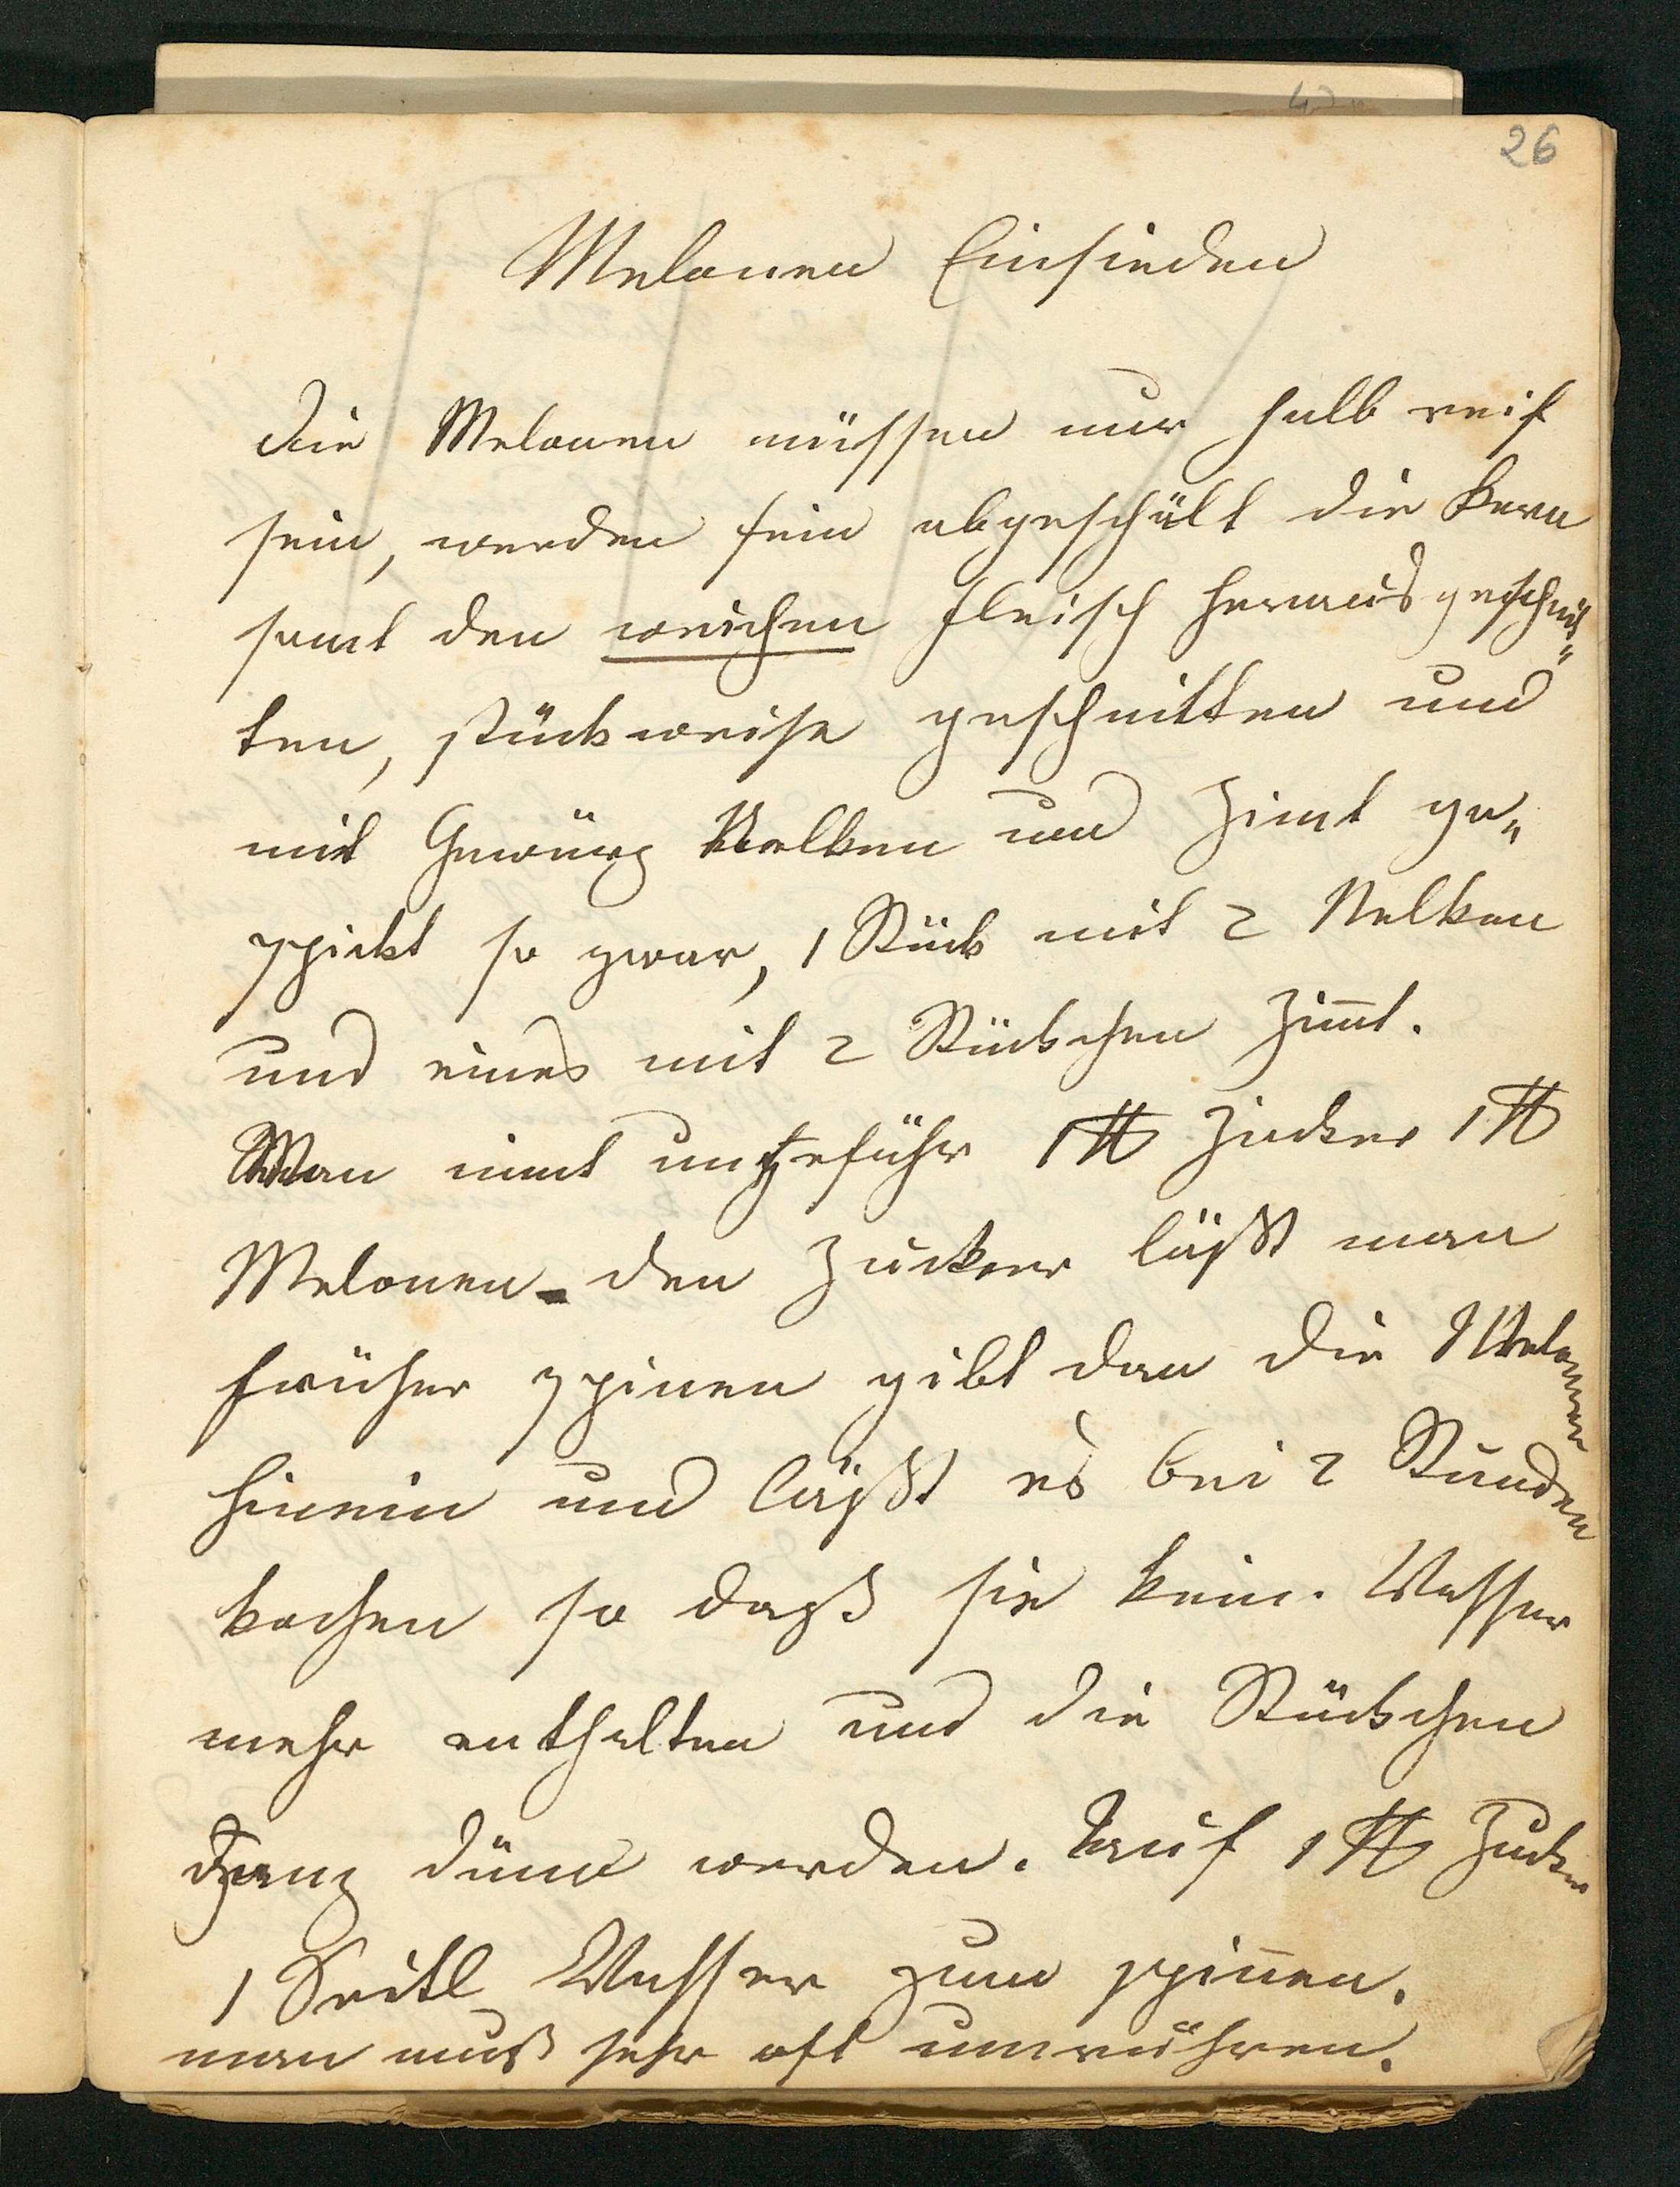 26
Melonen Einsieden
die Melonen müssen nur halb reif
sein, werden fein abgeschält die Kern
samt den weichen Fleisch herausgeschnit„
ten, stückweise geschnitten und
mit Gewürz Nelken und Zimt ge„
spickt so zwar, 1 Stück mit 2 Nelken
und eines mit 2 Stückchen Zim̅t.
Man nimt ungefähr 1 ℔ Zucker 1 ℔
Melonen - den Zucker läßt man
früher spinen gibt dan die Melonen
hinein und läßt es bei 2 Stunden
kochen so daß sie kein Wasser
mehr enthalten und die Stückchen
ganz dünn werden. Auf 1 ℔ Zucker
1 Seitl Wasser zum spin̅en.
man muß sehr oft umrühren.